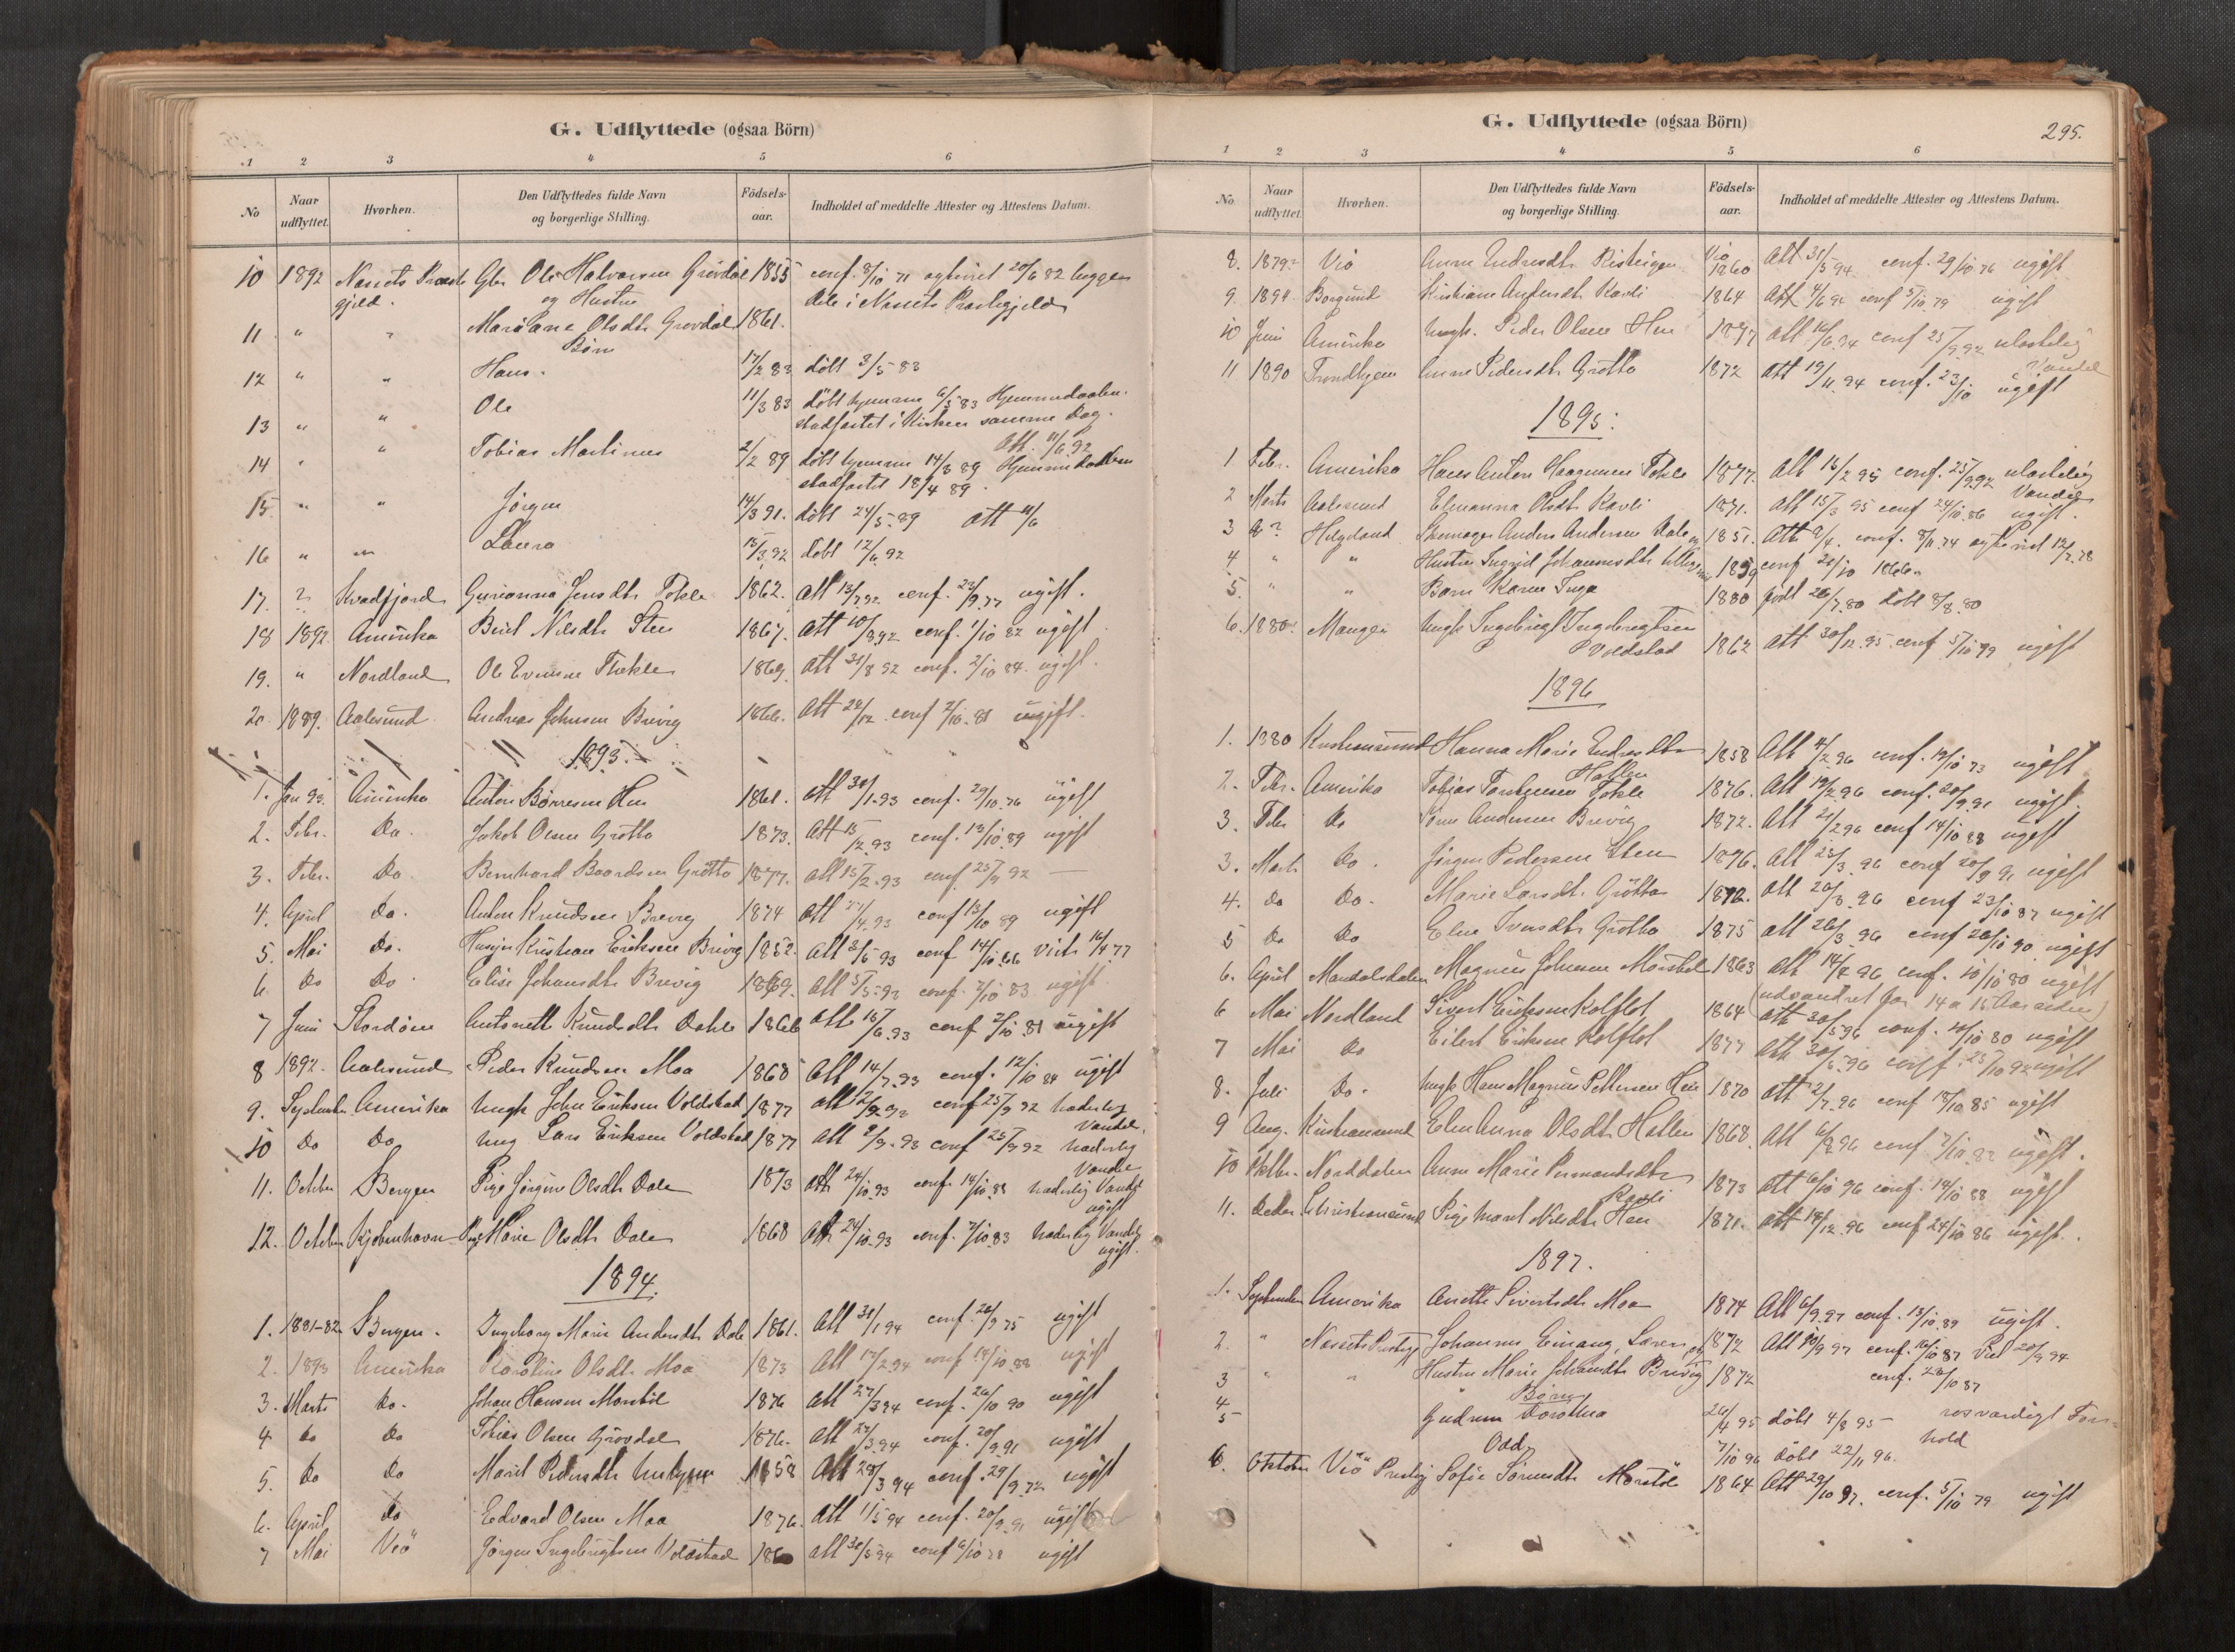 G. Udflyttede (ogsaa Börn)
1 2 3 4 5 6
No Naar udflyttet. Hvorhen. Den Udflyttedes fulde Navn og borgerlige Stilling. Födsels-aar. Indholdet af meddelte Attester og Attestens Datum.
10 1892 Nessets Præste Gbr Ole Halvorsen Grövdal 1855 conf. 8/10 71 og viet 20/6 82 begge
gjeld. og Hustru Dele i Nessets Præstegjeld
11 " " Mariane Olsdtr Grövdal 1861.
Börn
12 " " Hans. 17/2 83 döbt 3/5 83
13 " " Ole 11/3 83 döbt hjemme 6/5 83 Hjemmedaaben
stadfæstet i Kirken samme Dag.
Att. 11/6 92
14 " " Tobias Martinus 2/2 89 döbt hjemme 14/3 89 Hjemmedaaben
stadfæstet 18/4 89.
15 " " Jörgen 14/3 91. döbt 24/5 89 Att 11/6
16 " " Laura 15/3 92 döbt 12/6 92
17. ? Kvædfjord Gurianna Jensdtr Tokle 1862. Att 13/7 92 conf. 23/9 77 ugift.
18 1892. Amerika Berit Nilsdtr Sten 1867. Att 10/8 92 conf. 1/10 82 ugift.
19. " Nordland Ole Evensen Thokle 1869. Att 31/8 92 conf. 2/10 84. ugift.
20 1889. Aalesund Andreas Johnsen Brevig 1866. Att 28/12 conf 2/10 81 ugift.
1893.
1. Jan 93. Amerika Anton Börresen Hen 1861. Att 30/1 93 conf. 29/10 76 ugift
2. Febr. Do. Jakob Olsen Grötta 1873. Att 15/2 93 conf. 13/10 89 ugift
3. Febr. Do. Bernhard Baardsen Grötta 1877. Att 15/2 93 conf 25/9 92 —
4. April Do. Anton Knudsen Brevig 1874 Att /4 93 conf 13/10 89 ugift
5. Mai Do. Husejer Kristian Eriksen Brevig 1852. Att 3/5 93 conf 14/10 66 viet 16/4 77
6. Do Do Elise Johansdtr Brevig 1869. Att 5/5 93 conf. 7/10 83 ugift.
7 Juni Stordöen Antonette Knudsdtr Dahle 1866 Att 16/6 93 conf 2/10 81 ugift
8 1892. Aalesund Peder Knudsen Moa 1868 Att 14/7 93 conf. 12/10 84 ugift
9. September Amerika Ungk John Eriksen Voldstad 1877 Att 2/9 93 conf 25/9 92 hæderlig
Vandel.
10 Do Do Ung Lars Eriksen Voldstad 1877 Att 2/9 93 conf 25/9 92 hæderlig
Vandel
11. October Bergen Pige Jörgine Olsdtr Dale 1873 Att 24/10 93 conf. 14/10 88 hæderlig Vandel
ugift
12. October Kjöbenhavn Pige Marie Olsdtr Dale 1868 Att 24/10 93 conf. 7/10 83 hæderlig Vandel
ugift.
1894.
1. 1881-82 Bergen. Ingeborg Marie Andersdtr Dale 1861. Att 31/1 94 conf. 26/9 75 ugift
2. 1893 Amerika Karoline Olsdtr Moa 1873 Att 13/2 94 conf 14/10 88 ugift
3. Marts Do. Johan Hansen Morstöl 1876 Att 27/3 94 conf. 26/10 90 ugift
4 Do Do Tobias Olsen Grövdal 1876. Att 27/3 94 conf. 20/9 91 ugift
5. Do Do Marit Pedersdtr 1858 Att 28/3 94 conf. 29/9 72 ugift
6. April Do Edvard Olsen Moa 1876. Att 11/5 94 conf. 20/9 91 ugift
7 Mai Veö Jörgen Ingebrigtsen Voldstad 1860 Att 30/5 94 conf 6/10 78 ugift
G. Udflyttede (ogsaa Börn)
295.
1 2 3 4 5 6
No. Naar udflyttet. Hvorhen. Den Udflyttedes fulde Navn og borgerlige Stilling. Födsels-aar. Indholdet af meddelte Attester og Attestens Datum.
8. 1879? Veö Anne Endresdtr Risteigen Veö 1860 Att 31/5 94 conf. 29/10 76 ugift
9. 1894. Borgund Kristiane Andersdtr Ravli 1864 Att 4/6 94 conf 5/10 79 ugift
10 Juni Amerika Ungk. Peder Olsen Hen 1877 Att 16/6 94 conf 25/9 92 ulastelig
Vandel
11 1890 Trondhjem Anne Pedersdtr Grötta 1872 Att 19/11 94 conf. 23/10 ugift
1895:
1. Febr. Amerika Hans Anton Haagensen Tokle 1877. Att 15/2 95 conf. 25/9 92 ulastelig
Vandel
2 Marts Aalesund Elenanna Olsdtr Ravli 1871. Att 15/3 95 conf 24/10 86 ugift.
3 Do? Helgeland Skomager Anders Andersen Dale og 1851. Att 9/4. conf. 8/11 74 og viet 12/7 78
4 " " Hustru Ingrid Johannesdtr 1839 conf 21/10 1866.
5. " " Barn Karen Inga 1880 födt 26/7 80 döbt 8/8 80
6. 1880. Manger Ungk Ingebrigt Ingebrigtsen
Voldstad 1862 Att 30/12 95 conf 5/10 79 ugift
1896
1. 1880 Kristiansund Hanna Marie Endresdtr 1858 Att 4/2 96 conf. 19/10 73 ugift
Hatlen
2. Febr. Amerika Tobias Torstensen Tokle 1876. Att 19/2 96 conf. 20/9 91 ugift.
3. Febr Do Andersen Brevig 1872. Att 21/2 96 conf 14/10 88 ugift
3. Marts Do. Jörgen Pedersen Sten 1876. Att 25/3 96 conf 20/9 91 ugift
4. Do Do. Marie Larsdtr Grötta 1872. Att 26/3 96 conf 23/10 87 ugift
5 Do Do Elen Iversdtr Grötta 1875 Att 26/3 96 conf 26/10 90 ugift
6. April Mandalsdalen Magnus Johnsen Morstöl 1863 Att 14/4 96 conf. 10/10 80 ugift
(udvandret for 14 a 15 Aar siden)
6 Mai Nordland Sivert Eriksen Kolflot 1864 Att 30/5 96 conf. 10/10 80 ugift
7 Mai Do Eilert Eriksen Kolflot 1877 Att 30/5 96 conf. 25/10 92 ugift
8. Juli Do. Ungk Hans Magnus Pettersen Hen 1870 Att 2/7 96 conf 18/10 85 ugift
9 Aug. Kristiansund Elen Anna Olsdtr Hatlen 1868. Att 6/8 96 conf 7/10 83 ugift.
10 Oktbr. Norddalen Anne Marie 1873 Att 6/10 96 conf. 14/10 88 ugift
Ravli
11. Decbr. Christiansund Pige Marit Nilsdtr Hen 1871. Att 14/12 96 conf 24/10 86 ugift.
1897.
1. September Amerika Anette Sivertsdtr Moa 1874 Att 6/9 97 conf. 13/10 89 ugift.
2. " Nessets Prestgj Johannes Einang, Lærer, og 1872 Att 10/9 97 conf. 16/10 87 Viet 20/9 94
3 " " Hustru Marie Johansdtr Brevig 1872 conf. 23/10 87
Börn
4 Gudrun Dorothea 26/4 95 döbt 4/8 95 — rosværdigt For-
hold
5 Odd 7/10 96 döbt 22/11 96.
6. Oktober Veö Prestgj Sofie Sörensdtr Morstöl 1864 Att 29/10 97. conf. 5/10 79 ugift